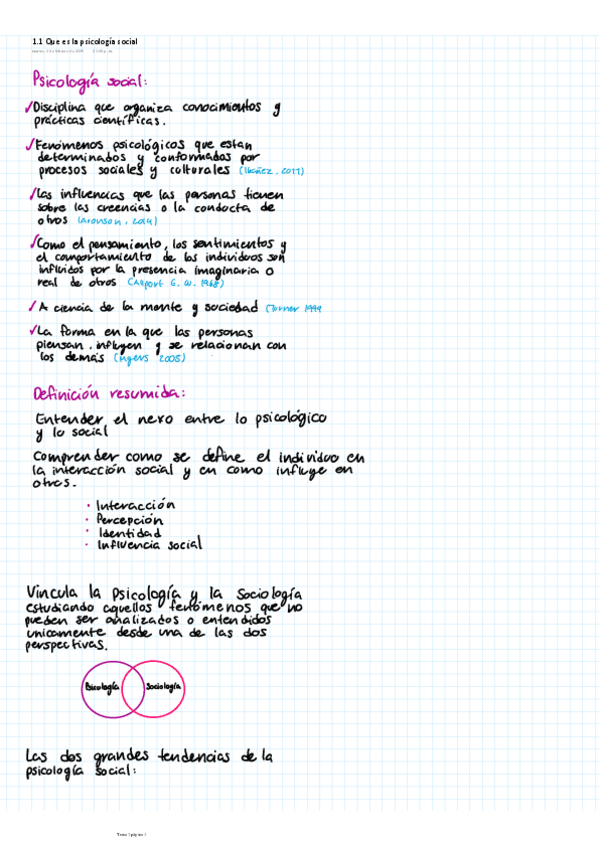 1.1 Que es la psicología social
Psicología social:
✓Disciplina que organiza conocimientos y
prácticas científicas.
✓Fenómenos psicológicos que estan
determinados y conformados por
procesos sociales y culturales (Ibañez, 2011)
✓Las influencias que las personas tienen
sobre las creencias o la conducta de
otros (Aronson, 2014)
✓Como el pensamiento, los sentimientos y
el comportamiento de los individuos son
influidos por la presencia imaginaria o
real de otros (Allport G. W. 1968)
✓A ciencia de la mente y sociedad (Turner 1999
✓La forma en la que las personas
piensan, influyen y se relacionan con
los demás (Myers 2005)
Definición resumida:
Entender el nexo entre lo psicológico
y lo social
Comprender como se define el individuo en
la interacción social y en como influye en
otros.
· Interacción
· Percepción
· Identidad
· Influencia social
Vincula la psicología y la sociología
estudiando aquellos fenómenos que no
pueden ser analizados o entendidos
unicamente desde una de las dos
perspectivas.
Psicología Sociología
Las dos grandes tendencias de la
psicología social: